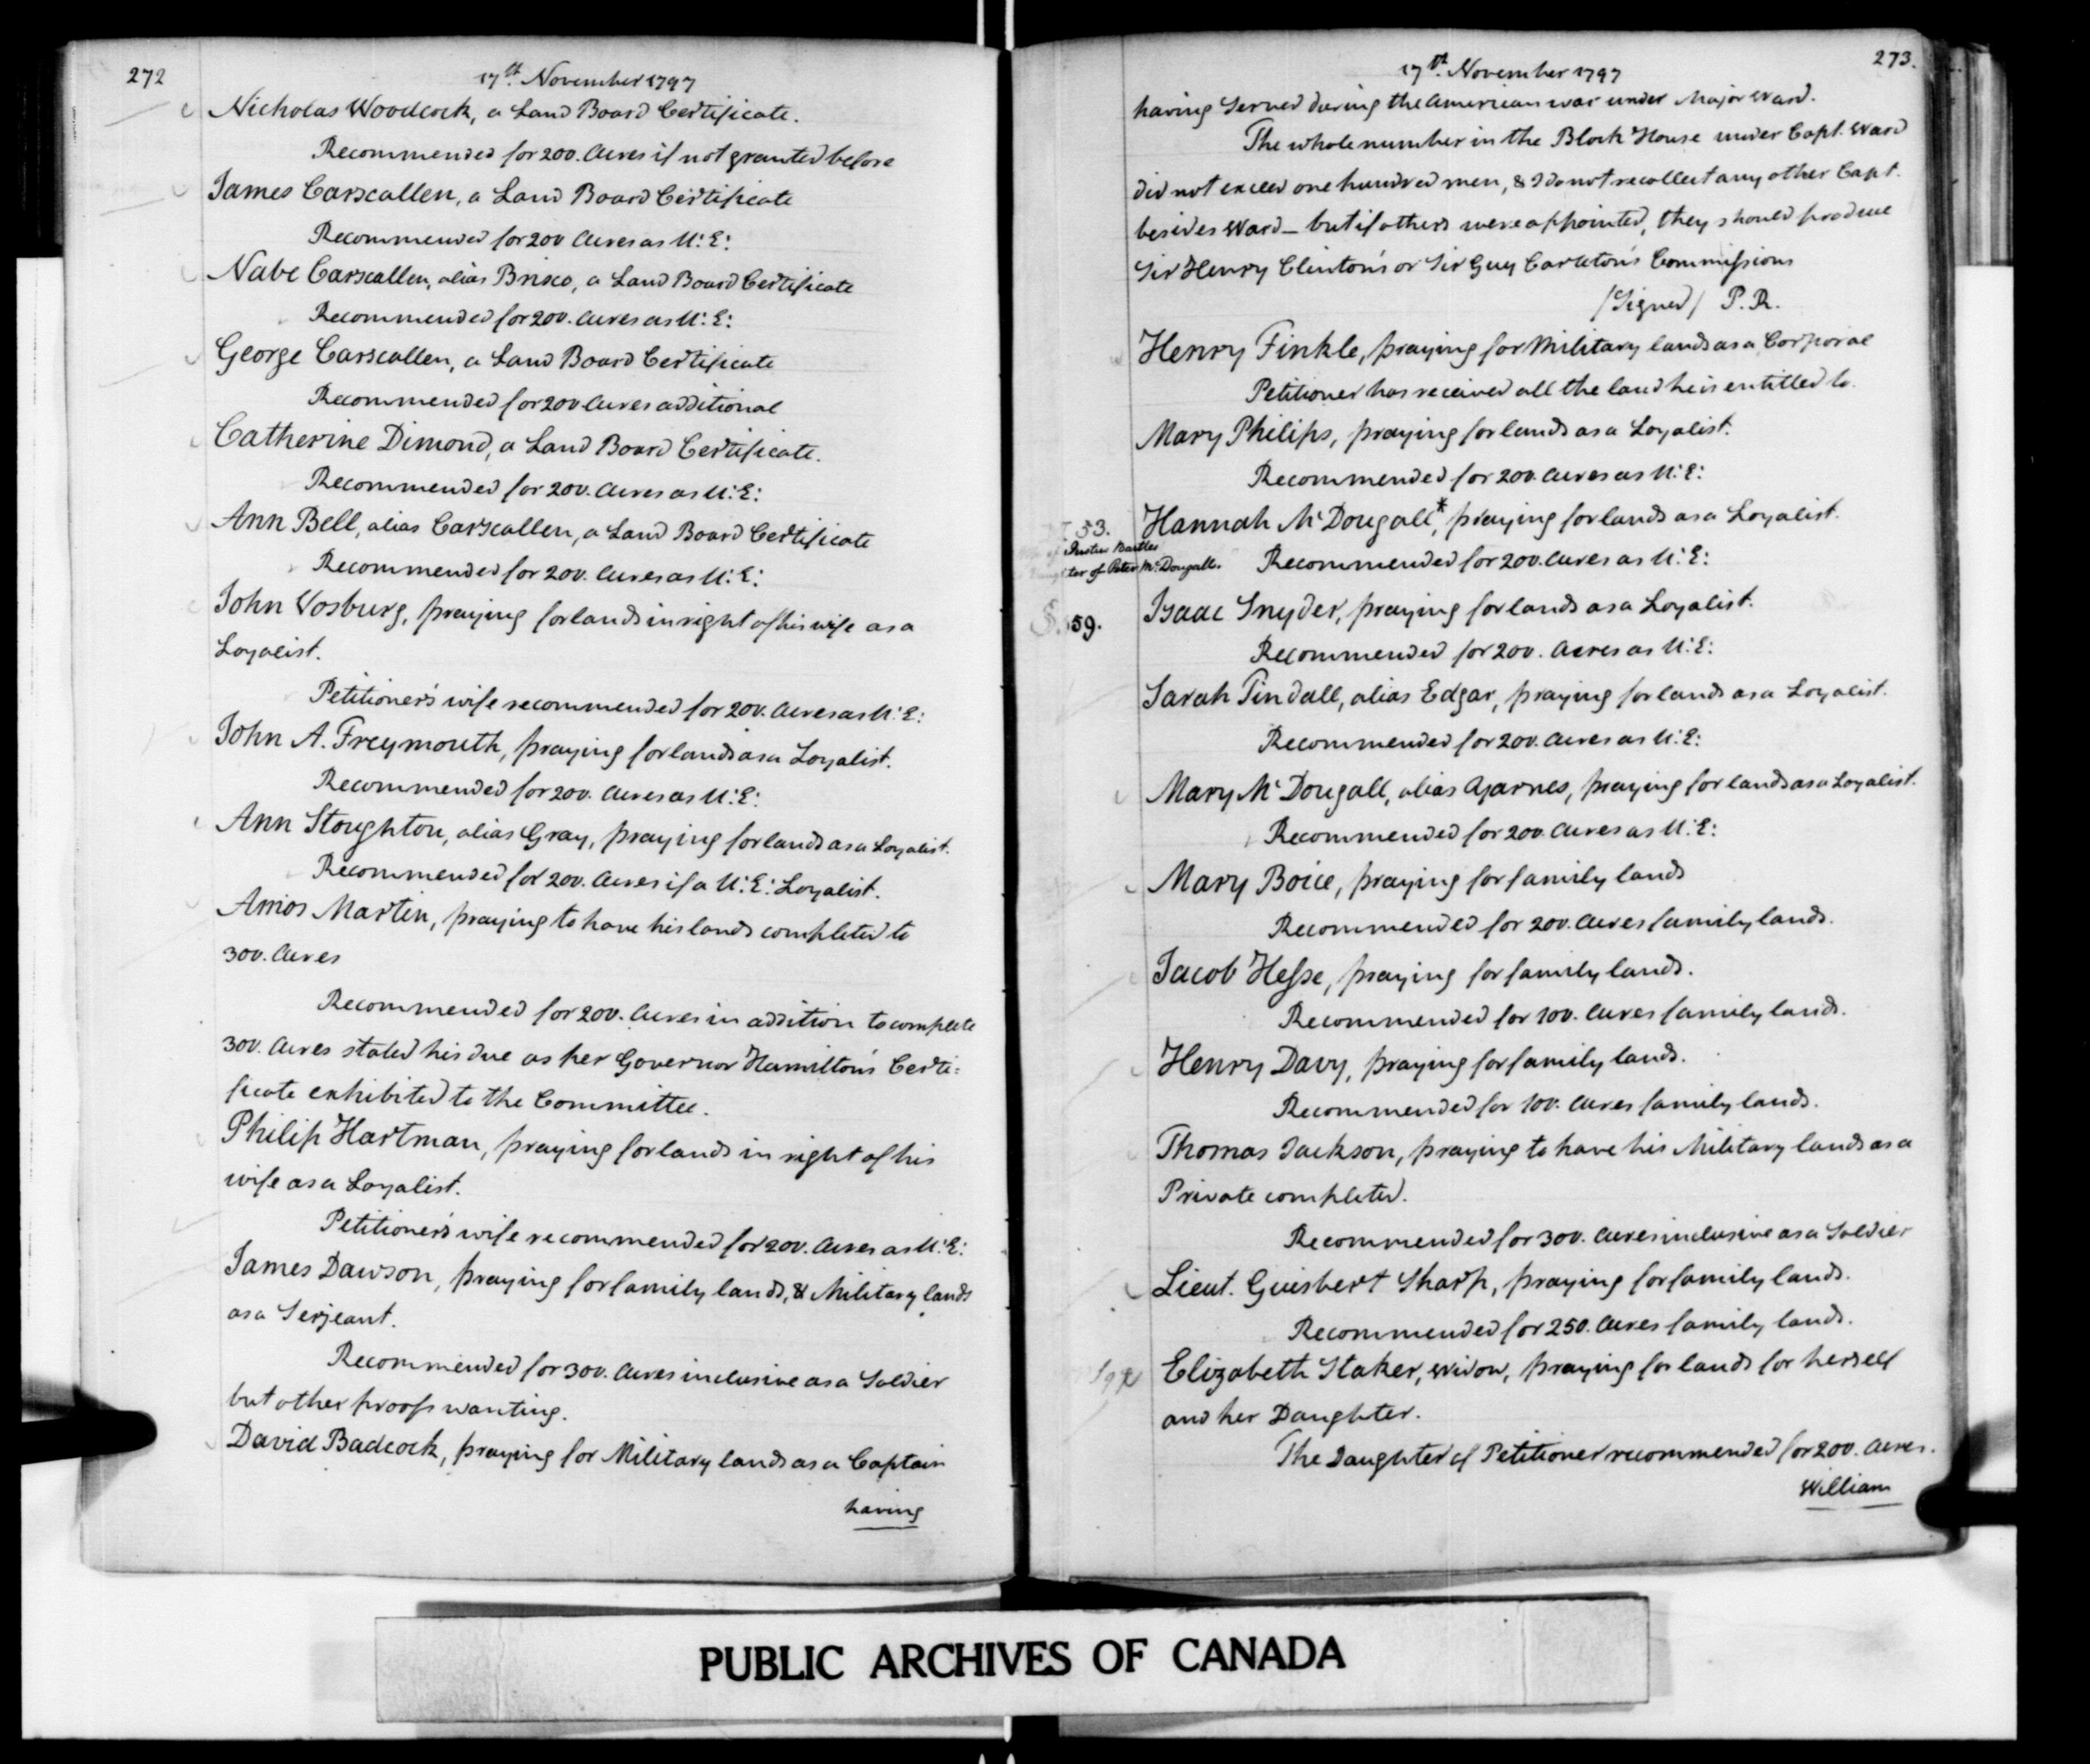 272
17th. November 1797
Nicholas Woodcock, a Land Board Certificate.
Recommended for 200. Acres if not granted before
James Carscallen, a Land Board Certificate
Recommended for 200 Acres as U:E:
Nabe Carscallen, alias Brisco, a Land Board Certificate
Recommended for 200. Acres as U:E:
George Carscallen, a Land Board Certificate
Recommended for 200 Acres additional
Catherine Dimond, a Land Board Certificate.
Recommended for 200. Acres as U:E:
Ann Bell, alias Carscallen, a Land Board Certificate
Recommended for 200. Acres as U:E:
John Vosburg, praying for lands in right of his wife as a
Loyalist.
Petitioner's wife recommended for 200. Acres as U:E:
John A. Freymouth, praying for lands as a Loyalist.
Recommended for 200. Acres as U:E:
Ann Stoughton, alias Gray, praying for lands as a Loyalist.
Recommended for 200. Acres if a U:E: Loyalist.
Amos Martin, praying to have his lands completed to
300. Acres
Recommended for 200. Acres in addition to complete
300. Acres stated his due as per Governor Hamilton's Certi=
ficate exhibited to the Committee.
Philip Hartman, praying for lands in right of his
wife as a Loyalist.
Petitioner's wife recommended for 200. Acres as U:E:
James Dawson, praying for family lands, & Military lands
as a Serjeant.
Recommended for 300. Acres inclusive as a Soldier
but other proofs wanting.
David Badcock, praying for Military lands as a Captain
having
273.
17th. November 1797
having Served during the American war under Major Ward.
The whole number in the Block House under Capt. Ward
did not exceed one hundred men, & I do not recollect any other Capt.
besides Ward – but if others were appointed, they should produce
Sir Henry Clinton's or Sir Guy Carleton's Commissions
(Signed) P.R.
Henry Finkle, praying for Military lands as a Corporal
Petitioner has received all the land he is entitled to.
Mary Philips, praying for lands as a Loyalist.
Recommended for 200. Acres as U:E:
53. Hannah McDougall*, praying for lands as a Loyalist.
Justus Bartles
ter of Peter McDougall. Recommended for 200. Acres as U:E:
S. 59. Isaac Snyder, praying for lands as a Loyalist.
Recommended for 200. Acres as U:E:
Sarah Tindall, alias Edgar, praying for lands as a Loyalist.
Recommended for 200. Acres as U:E:
Mary McDougall, alias Ajarnes, praying for lands as a Loyalist.
Recommended for 200. Acres as U:E:
Mary Boice, praying for family lands
Recommended for 200. Acres family lands.
Jacob Hesse, praying for family lands.
Recommended for 100. Acres family lands.
Henry Davy, praying for family lands.
Recommended for 100. Acres family lands.
Thomas Jackson, praying to have his Military lands as a
Private completed.
Recommended for 300. Acres inclusive as a Soldier
Lieut. Guisbert Sharp, praying for family lands.
Recommended for 250. Acres family lands.
Elizabeth Staker, widow, praying for lands for herself
and her Daughter.
The Daughter of Petitioner recommended for 200. Acres.
William
PUBLIC ARCHIVES OF CANADA